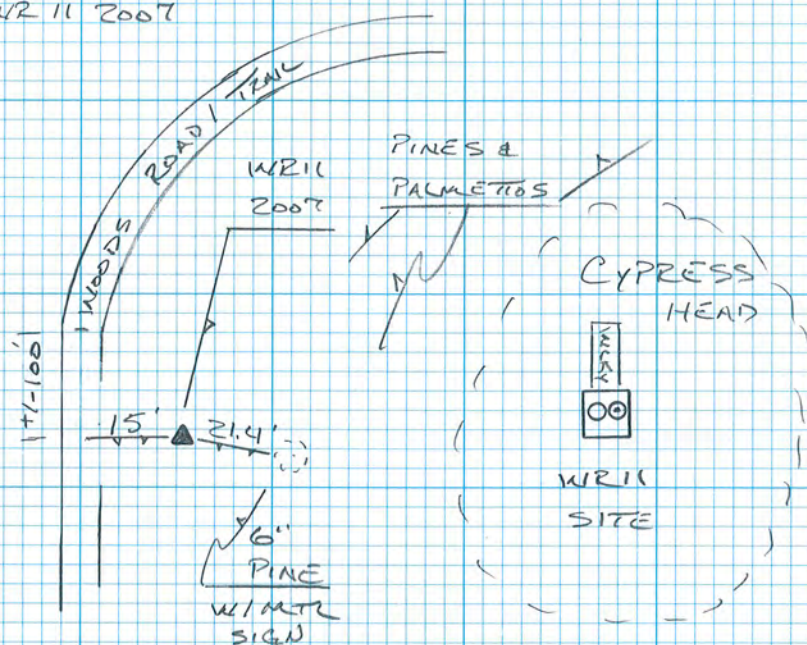 WR 11 2007
WOODS ROAD / TRAIL
WR11
2007
PINES &
PALMETTOS
CYPRESS
HEAD
WLKY
+/-100'
15'
21.4'
WR11
SITE
6"
PINE
W/MTL
SIGN